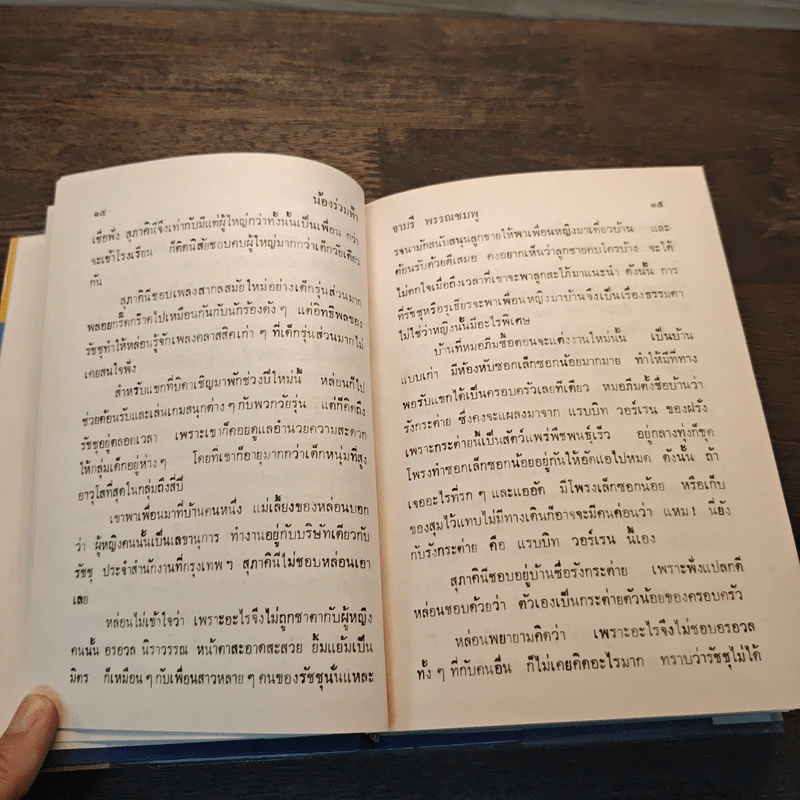 ๑๔ น้องร่วมฟ้า
เชื่อฟัง สุภาคินีจึงเท่ากับมีแต่ผู้ใหญ่กว่าทั้งนั้นเป็นเพื่อน กว่า
จะเข้าโรงเรียน ก็ติดนิสัยชอบคบผู้ใหญ่มากกว่าเด็กวัยเดียว
กัน
สุภาคินีชอบเพลงสากลสมัยใหม่อย่างเด็กรุ่นส่วนมาก
พลอยกรี๊ดกร๊าดไปเหมือนกันกับนักร้องดังๆ แต่อิทธิพลของ
รัชชุทำให้หล่อนรู้จักเพลงคลาสสิคเก่าๆ ที่เด็กรุ่นส่วนมากไม่
เคยสนใจฟัง
สำหรับแขกที่บิดาเชิญมาพักช่วงปีใหม่นี้ หล่อนก็ไป
ช่วยต้อนรับและเล่นเกมสนุกต่างๆ กับพวกวัยรุ่น แต่ก็คิดถึง
รัชชุอยู่ตลอดเวลา เพราะเขาก็คอยดูแลอำนวยความสะดวก
ให้กลุ่มเด็กอยู่ห่างๆ โดยที่เขาก็อายุมากกว่าเด็กหนุ่มที่สูง
อาวุโสที่สุดในกลุ่มถึงสี่ปี
เขาพาเพื่อนมาที่บ้านคนหนึ่ง แม่เลี้ยงของหล่อนบอก
ว่า ผู้หญิงคนนั้นเป็นเลขานุการ ทำงานอยู่กับบริษัทเดียวกับ
รัชชุ ประจำสำนักงานที่กรุงเทพฯ สุภาคินีไม่ชอบหล่อนเอา
เลย
หล่อนไม่เข้าใจว่า เพราะอะไรจึงไม่ถูกชาตากับผู้หญิง
คนนั้น อรอวล นิราวรรณ หน้าตาสะอาดสะสวย ยิ้มแย้มเป็น
มิตร ก็เหมือนๆ กับเพื่อนสาวหลายๆ คนของรัชชุนั่นแหละ
อามรี พรรณชมพู ๑๕
รจนามักสนับสนุนลูกชายให้พาเพื่อนหญิงมาเที่ยวบ้าน และ
ต้อนรับด้วยดีเสมอ คงอยากเห็นว่าลูกชายคบใครบ้าง จะได้
ไม่ตกใจเมื่อถึงเวลาที่เขาจะพาลูกสะใภ้มาแนะนำ ดังนั้น การ
ที่รัชชุหรือรุเธียรจะพาเพื่อนหญิงมาบ้านจึงเป็นเรื่องธรรมดา
ไม่ใช่ว่าหญิงนั้นมีอะไรพิเศษ
บ้านที่หมอภีมซื้อตอนจะแต่งงานใหม่นั้น เป็นบ้าน
แบบเก่า มีห้องหับซอกเล็กซอกน้อยมากมาย ทำให้มีที่ทาง
พอรับแขกได้เป็นครอบครัวเลยทีเดียว หมอภีมตั้งชื่อบ้านว่า
รังกระต่าย ซึ่งคงจะแผลงมาจาก แรบบิท วอร์เรน ของฝรั่ง
เพราะกระต่ายนี้เป็นสัตว์แพร่พืชพนธุ์เร็ว อยู่กลางทุ่งก็ขุด
โพรงทำซอกเล็กซอกน้อยอยู่กันให้อัดแอไปหมด ดังนั้น ถ้า
เจออะไรที่รกๆ และแออัด มีโพรงเล็กซอกน้อย หรือเก็บ
ของสุมไว้แทบไม่มีทางเดินก็อาจจะมีคนค่อนว่า แหม! นี่ยัง
กับรังกระต่าย คือ แรบบิท วอร์เรน นี้เอง
สุภาคินีชอบอยู่บ้านชื่อรังกระต่าย เพราะฟังแปลกดี
หล่อนชอบด้วยว่า ตัวเองเป็นกระต่ายตัวน้อยของครอบครัว
หล่อนพยายามคิดว่า เพราะอะไรจึงไม่ชอบอรอวล
ทั้งๆ ที่กับคนอื่น ก็ไม่เคยคิดอะไรมาก ทราบว่ารัชชุไม่ได้